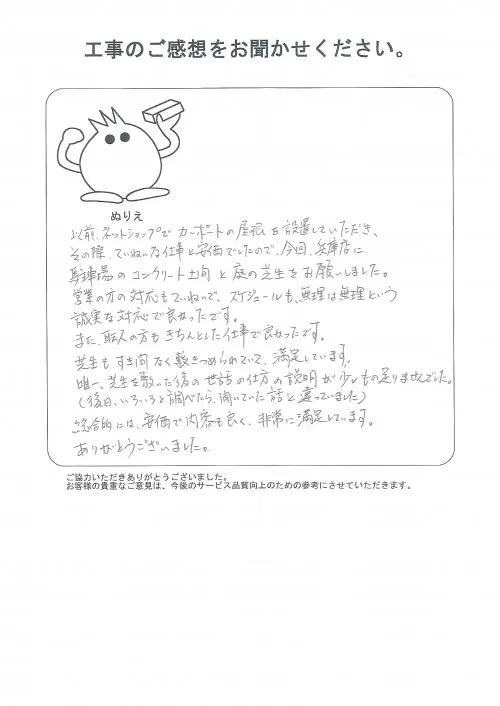 工事のご感想をお聞かせください。
ぬりえ
以前、ネットショップでカーポートの屋根を設置していただき、
その際、ていねいな仕事と安価でしたので、今回、兵庫店に
駐車場のコンクリート土間と庭の芝生をお願いしました。
営業の方の対応もていねいで、スケジュールも、無理は無理という
誠実な対応で良かったです。
また、職人の方もきちんとした仕事で良かったです。
芝生もすき間なく敷きつめられていて、満足しています。
唯一、芝生を敷った後の世話の仕方の説明が少しもの足りませんでした。
(後日、いろいろと調べたら、聞いていた話と違っていました)
総合的には、安価で内容も良く、非常に満足しています。
ありがとうございました。
ご協力いただきありがとうございました。
お客様の貴重なご意見は、今後のサービス品質向上のための参考にさせていただきます。